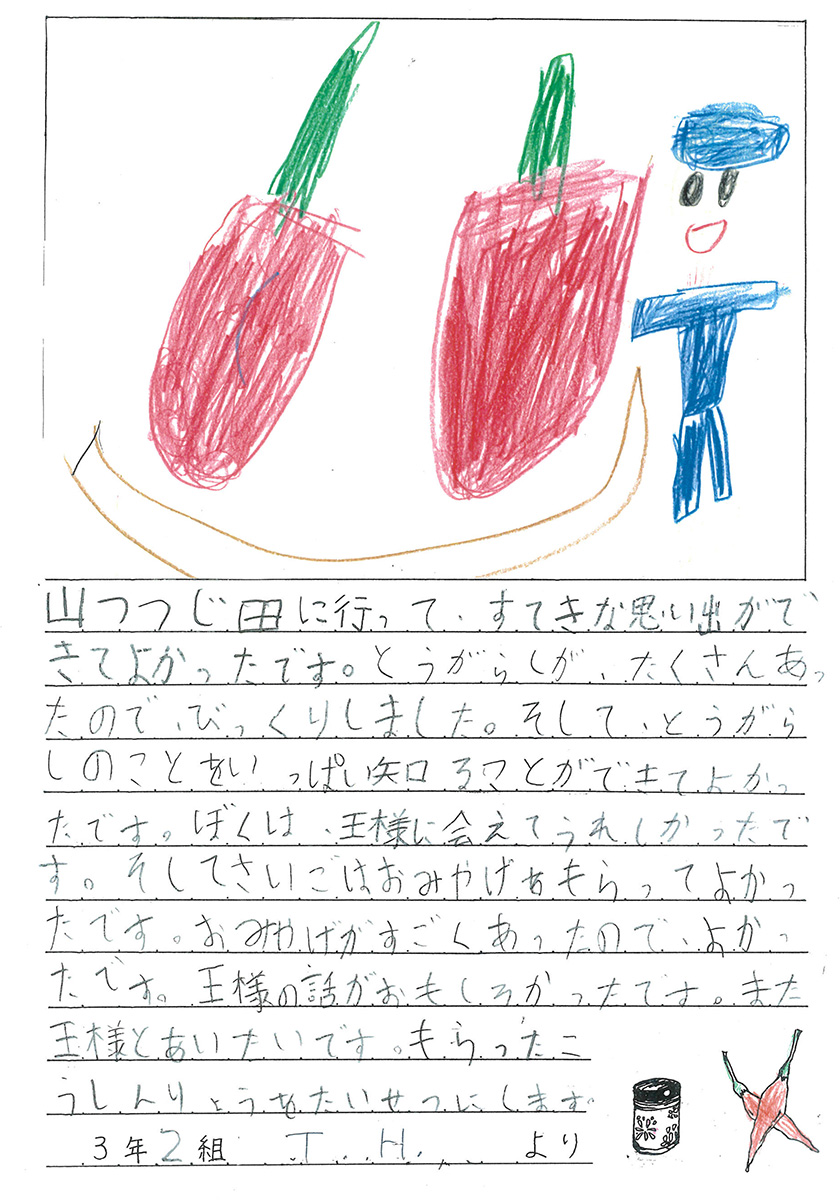 山つつじ田に行って、すてきな思い出がで
きてよかったです。とうがらしが、たくさんあっ
たので、びっくりしました。そして、とうがら
しのことをいっぱい知ることができてよかっ
たです。ぼくは、王様に会えてうれしかったで
す。そしてさいごはおみやげをもらってよかっ
たです。おみやげがすごくあったので、よかっ
たです。王様の話がおもしろかったです。また
王様とあいたいです。もらったこ
うしんりょうをたいせつにします
3年2組 T.H. より